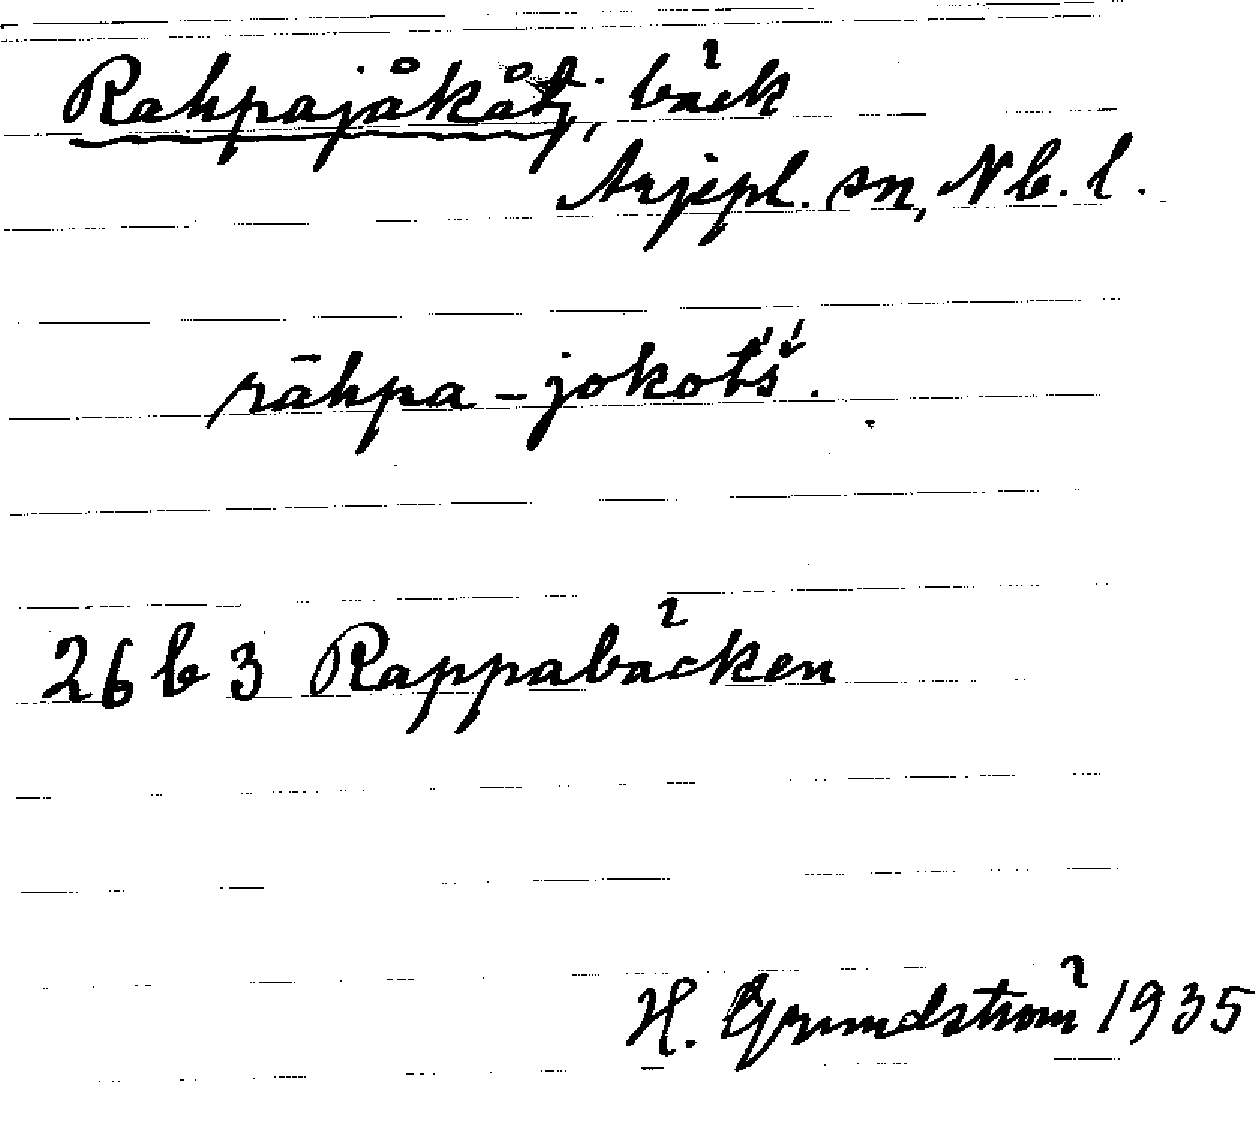 Rahpajåkåtj, bäck
Arjepl. sn, Nb. l.
rāhpa-jokotš́.
26 b 3 Rappabäcken
H. Grundström 1935